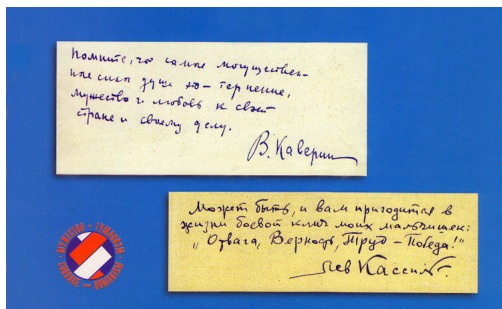 Помните, что самые могуществен-
ные силы души это – терпение,
мужество и любовь к своей
стране и своему делу.
В. Каверин
Может быть, и вам пригодится в
жизни боевой клич моих мальчишек:
"Отвага, Верность, Труд – Победа!"
Лев Кассиль.
МУЖЕСТВО
ГУМАНИЗМ
COURAGE and HUMANISM